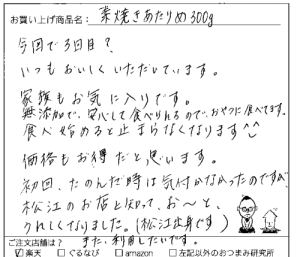 お買い上げ商品名: 素焼きあたりめ300g
今回で3回目?
いつもおいしくいただいています。
家族もお気に入りです。
無添加で、安心して食べられるので、おやつに食べてます。
食べ始めると止まらなくなります^^
価格もお得だと思います。
初回、たのんだ時は気付かなかったのですが、
松江のお店と知って、お〜と、
うれしくなりました。(松江出身です)
また、利用したいです。
ご注文店舗は?
☑楽天 □ぐるなび □amazon □左記以外のおつまみ研究所